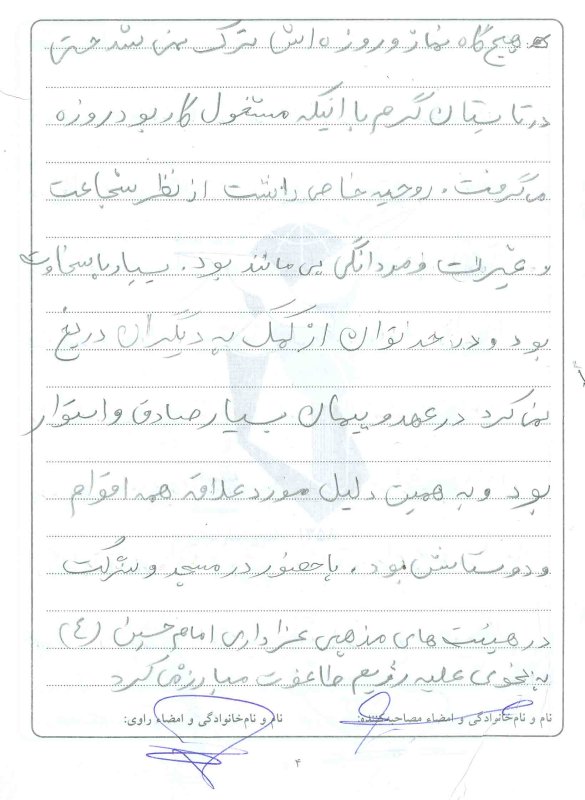 هیچ گاه نماز و روزه اش ترک نمی شد حتی
در تابستان گرم با اینکه مشغول کار بود روزه
می گرفت. روحیه خاصی داشت از نظر شجاعت
و غیرت و مردانگی بی مانند بود. بسیار با سخاوت
بود و در حد توان از کمک به دیگران دریغ
نمی کرد در عهد و پیمان بسیار صادق و استوار
بود و به همین دلیل مورد علاقه همه اقوام
و دوستانش بود. با حضور در مسجد و شرکت
در هیئت های مذهبی عزاداری امام حسین (ع)
به نحوی علیه رژیم طاغوت مبارزه می کرد
نام و نام‌خانوادگی و امضاء مصاحبه‌کننده: نام و نام‌خانوادگی و امضاء راوی:
۴